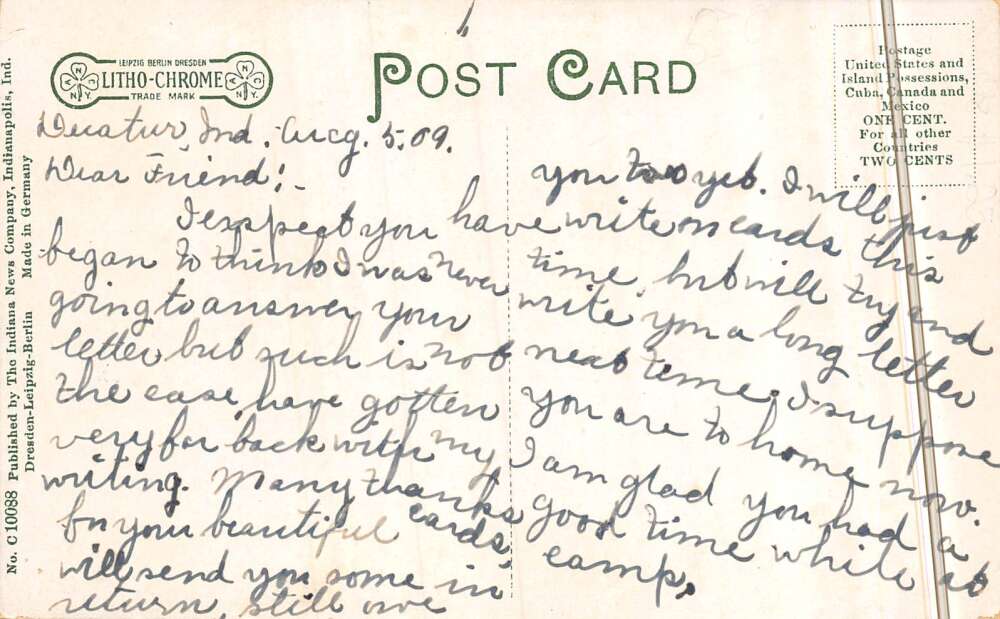 LEIPZIG BERLIN DRESDEN
LITHO-CHROME
TRADE MARK
A N C
N.Y.
A N C
N.Y.
POST CARD
Postage
United States and
Island Possessions,
Cuba, Canada and
Mexico
ONE CENT.
For all other
Countries
TWO CENTS
No. C 10088 Published by The Indiana News Company, Indianapolis, Ind.
Dresden-Leipzig-Berlin Made in Germany
Decatur, Ind. Aug. 5, 09.
Dear Friend:-
I expect you have
began to think I was never
going to answer your
letter but such is not
the case, have gotten
very far back with my
writing. Many thanks
for your beautiful cards,
will send you some in
return, still owe
you two yet. I will just
write on cards this
time, but will try and
write you a long letter
next time. I suppose
you are to home now.
I am glad you had a
good time while at
camp.